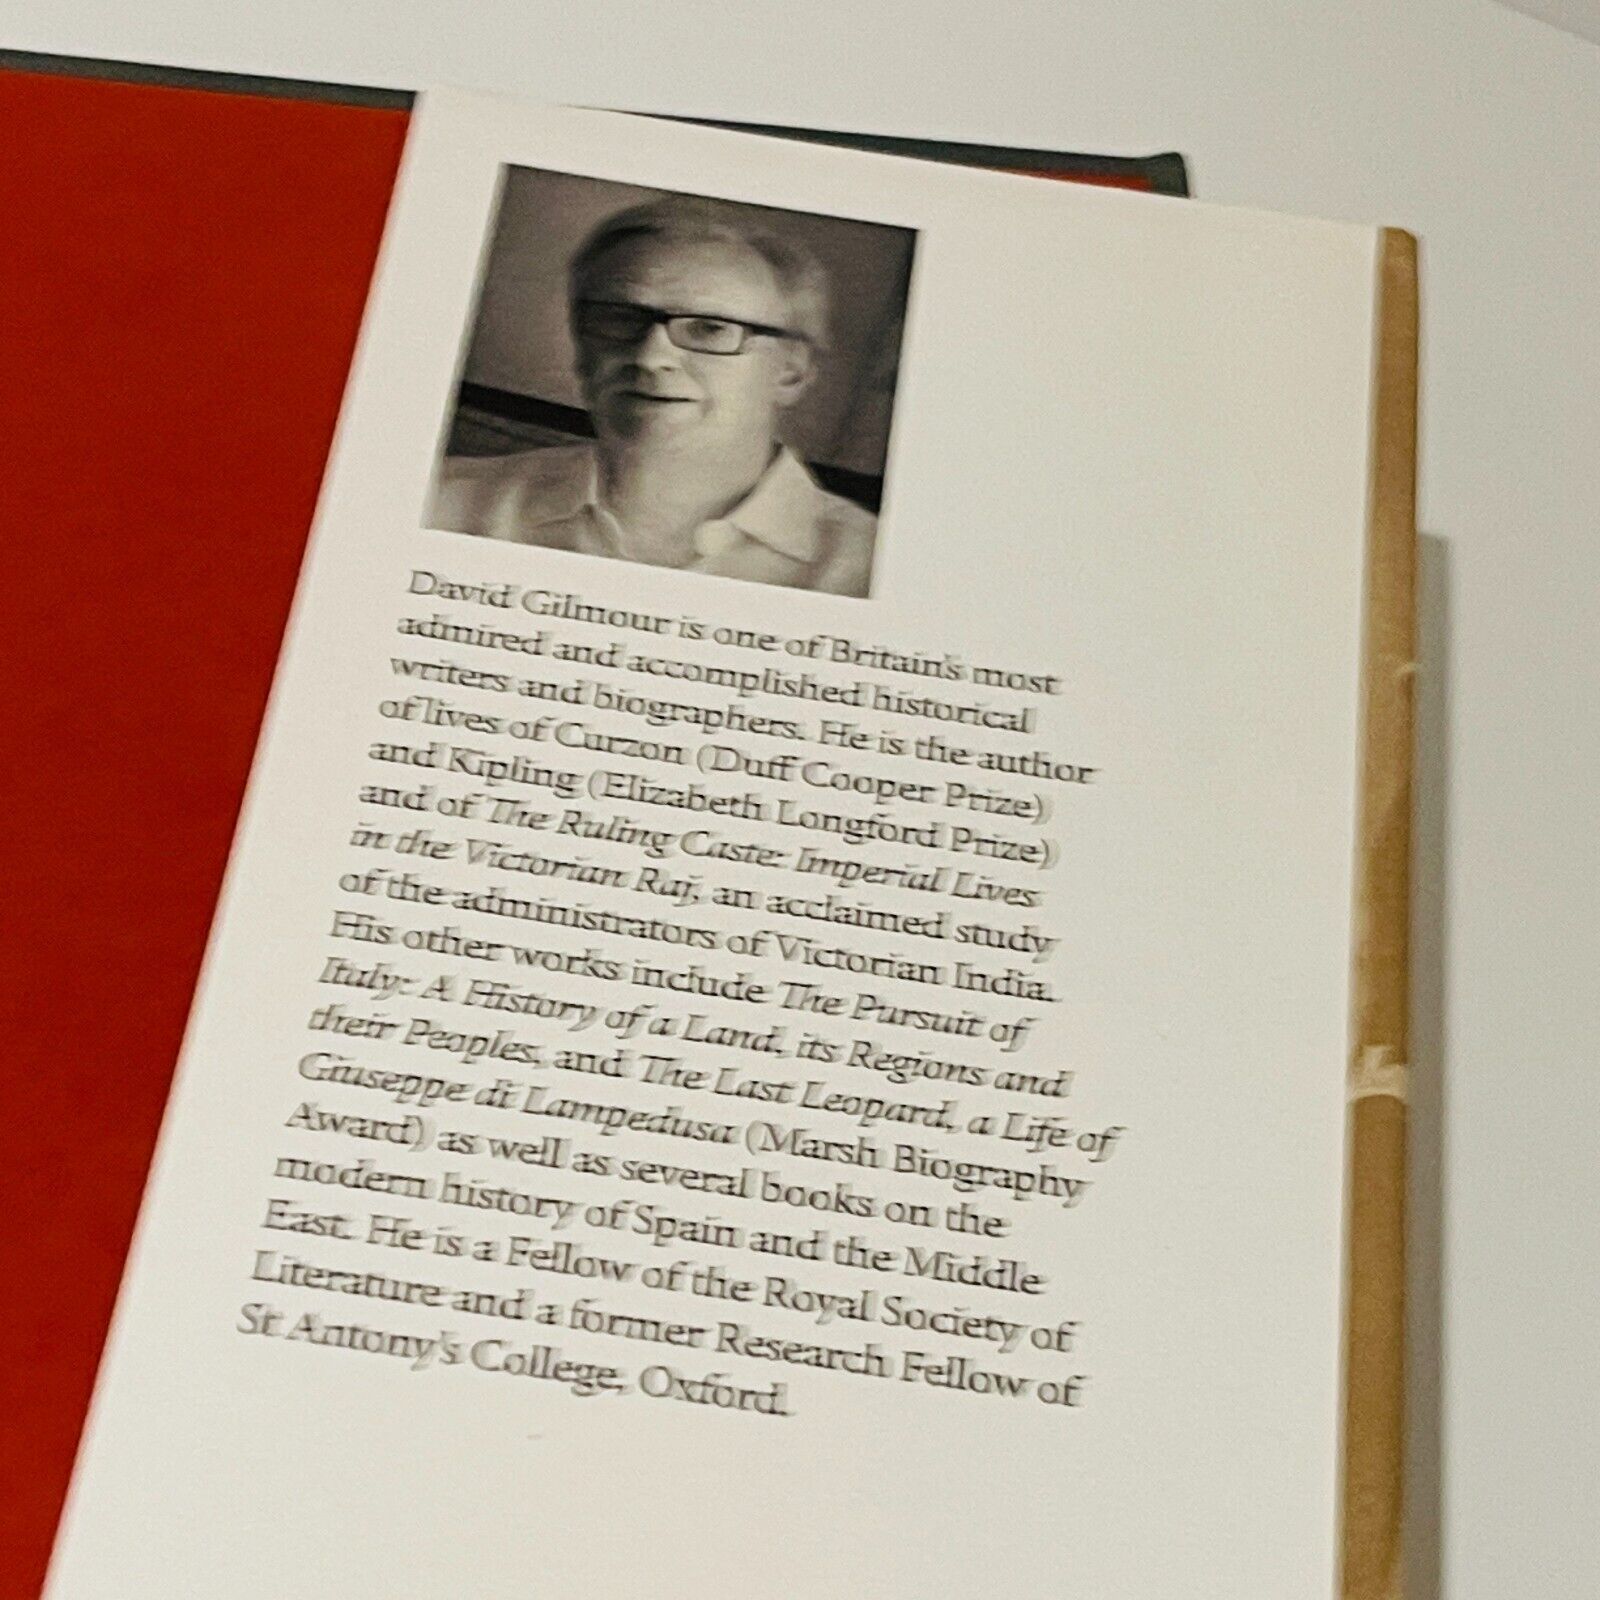 David Gilmour is one of Britain's most
admired and accomplished historical
writers and biographers. He is the author
of lives of Curzon (Duff Cooper Prize)
and Kipling (Elizabeth Longford Prize)
and of The Ruling Caste: Imperial Lives
in the Victorian Raj, an acclaimed study
of the administrators of Victorian India.
His other works include The Pursuit of
Italy: A History of a Land, its Regions and
their Peoples, and The Last Leopard, a Life of
Giuseppe di Lampedusa (Marsh Biography
Award) as well as several books on the
modern history of Spain and the Middle
East. He is a Fellow of the Royal Society of
Literature and a former Research Fellow of
St Antony's College, Oxford.